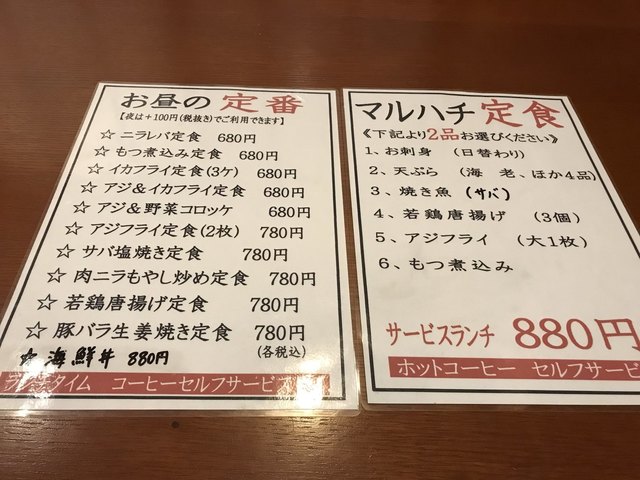 お昼の 定番
【夜は+100円(税抜き)でご利用できます】
☆ ニラレバ定食 680円
☆ もつ煮込み定食 680円
☆ イカフライ定食(3ケ) 680円
☆ アジ&イカフライ定食 680円
☆ アジ&野菜コロッケ 680円
☆ アジフライ定食(2枚) 780円
☆ サバ塩焼き定食 780円
☆ 肉ニラもやし炒め定食 780円
☆ 若鶏唐揚げ定食 780円
☆ 豚バラ生姜焼き定食 780円
(各税込)
☆ 海鮮丼 880円
ランチタイム コーヒーセルフサービス
マルハチ 定食
《下記より2品お選びください》
1、お刺身 (日替わり)
2、天ぷら (海老、ほか4品)
3、焼き魚 (サバ)
4、若鶏唐揚げ (3個)
5、アジフライ (大1枚)
6、もつ煮込み
サービスランチ 880円
ホットコーヒー セルフサービ